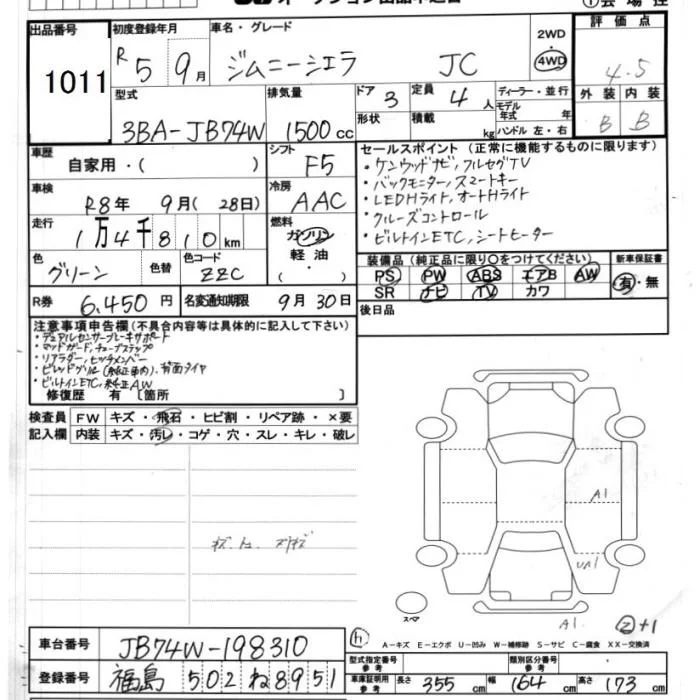 出品番号 初度登録年月 車名・グレード 2WD 評価点
1011 R5 9月 ジムニーシエラ JC 4WD 4.5
型式 排気量 ドア 3 定員 4人 ディーラー・並行 外装 内装
3BA-JB74W 1500cc 形状 積載 kg モデル年式 年 ハンドル 左・右 B B
車歴 シフト セールスポイント (正常に機能するものに限ります)
自家用・( ) F5 ・ケンウッドナビ,フルセグTV
車検 冷房 ・バックモニター,スマートキー
R8年 9月 (28日) AAC ・LEDHライト,オートHライト
走行 燃料 ・クルーズコントロール
1万4千810km ガソリン ・ビルトインETC,シートヒーター
色 色替 色コード 軽油 装備品 (純正品に限り○をつけてください) 新車保証書
グリーン ZZC ( ・ ) PS PW ABS エアB AW 有・無
SR ナビ TV カワ
R券 6,450円 名変通知期限 9月30日 後日品
注意事項申告欄(不具合内容等は具体的に記入して下さい)
・デュアルセンサーブレーキサポート
・マッドガード,チューブステップ
・リアラダー,ヒッチメンバー
・ビルトインETC,純正AW
修復歴 有 [箇所 ]
検査員 FW キズ・飛石・ヒビ割・リペア跡・×要
記入欄 内装 キズ・汚レ・コゲ・穴・スレ・キレ・破レ
A1
UA1
スペア
A1 ②+1
車台番号 JB74W-198310 A-キズ E-エクボ U-凹み W-補修跡 S-サビ C-腐食 XX-交換済
型式指定番号 参考 類別区分番号 参考
登録番号 福島 502 ね 8951 車庫証明用 参考 長さ 355cm 幅 164cm 高さ 173cm